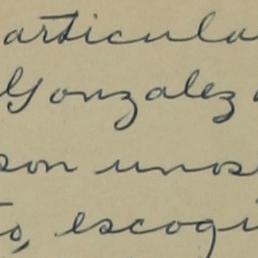 articula
Gonzalez
son unos
to, escogi